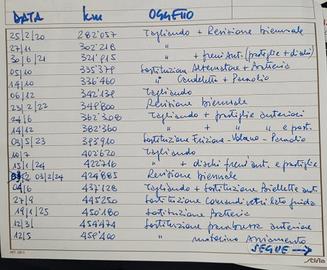 DATA km OGGETTO
25/2/20 282'057 Tagliando + Revisione biennale
27/11 302'218 "
30/6/21 321'915 " + freni Ant. (pastiglie + dischi)
05/10 335'378 Sostituzione Alternatore + Batteria
14/10 336'460 " Candelette + Pomolo
06/12 342'139 Tagliando
23/2/22 348'800 Revisione biennale
24/6 362'308 Tagliando + pastiglie anteriori
14/12 382'360 " + " " e post.
03/5/23 393'910 Sostituzione Frizione - Volano -
10/7 402'620 Tagliando
15/1/24 422'716 " + dischi freni ant. e pastiglie
2/24 424'885 Revisione biennale
04/6 437'128 Tagliando + Sostituzione Biellette ant.
27/9 445'250 Sostituzione Comandi vetri lato guida
19/1/25 450'180 Sostituzione Batteria
12/3 454'474 Sostituzione parabrezza anteriore
12/5 459'400 " motorino Avviamento
SEGUE →